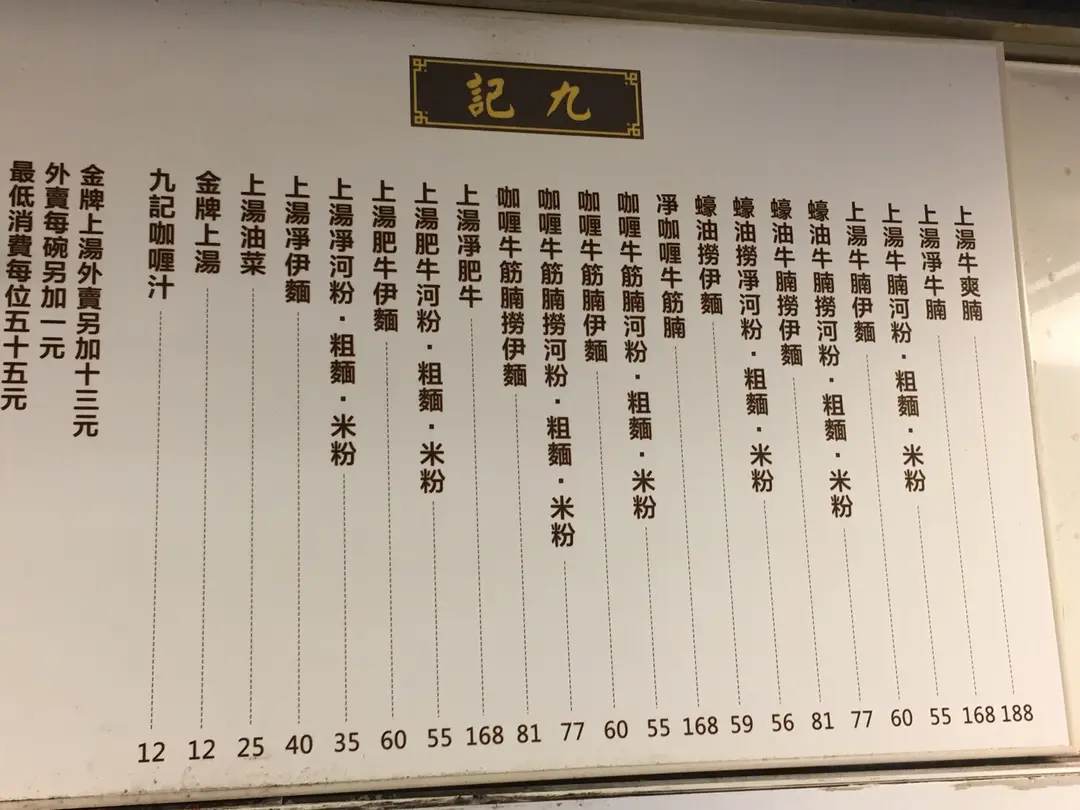 九記
上湯牛爽腩 188
上湯凈牛腩 168
上湯牛腩河粉．粗麵．米粉 55
上湯牛腩伊麵 60
蠔油牛腩撈河粉．粗麵．米粉 77
蠔油牛腩撈伊麵 81
蠔油撈凈河粉．粗麵．米粉 56
蠔油撈伊麵 59
凈咖喱牛筋腩 168
咖喱牛筋腩河粉．粗麵．米粉 55
咖喱牛筋腩伊麵 60
咖喱牛筋腩撈河粉．粗麵．米粉 77
咖喱牛筋腩撈伊麵 81
上湯凈肥牛 168
上湯肥牛河粉．粗麵．米粉 55
上湯肥牛伊麵 60
上湯凈河粉．粗麵．米粉 35
上湯凈伊麵 40
上湯油菜 25
金牌上湯 12
九記咖喱汁 12
金牌上湯外賣另加十三元
外賣每碗另加一元
最低消費每位五十五元